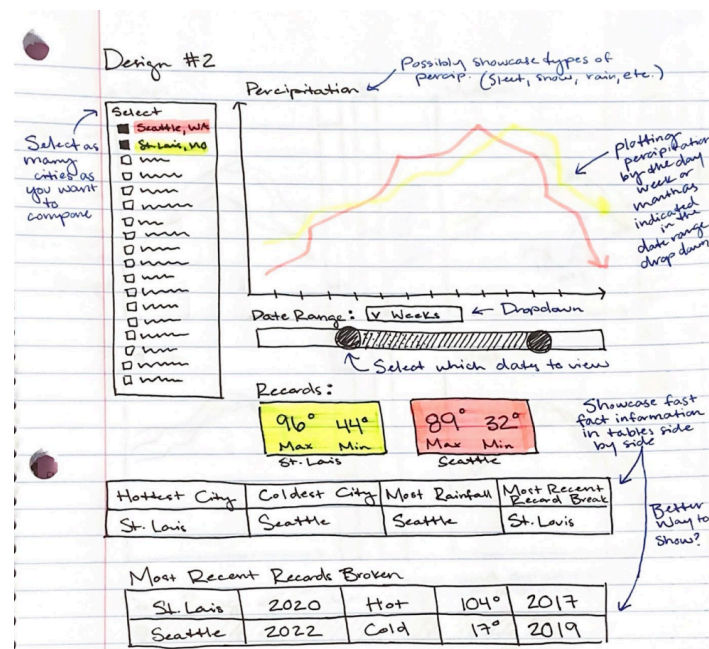 Design #2
Possibly showcase types of
percip. (Sleet, snow, rain, etc.)
Percipitation
Select as
many
cities as
you want
to
compare
Select
Seattle, WA
St. Louis, MO
plotting
percipitation
by the day
week or
month as
indicated
in the
date range
drop down
Date Range: v Weeks
Dropdown
Select which dates to view
Records:
96° 44°
Max Min
St. Louis
89° 32°
Max Min
Seattle
Showcase fast
fact information
in tables side
by side
Hottest City Coldest City Most Rainfall Most Recent
Record Break
St. Louis Seattle Seattle St. Louis
Better
way to
show?
Most Recent Records Broken
St. Louis 2020 Hot 104° 2017
Seattle 2022 Cold 17° 2019